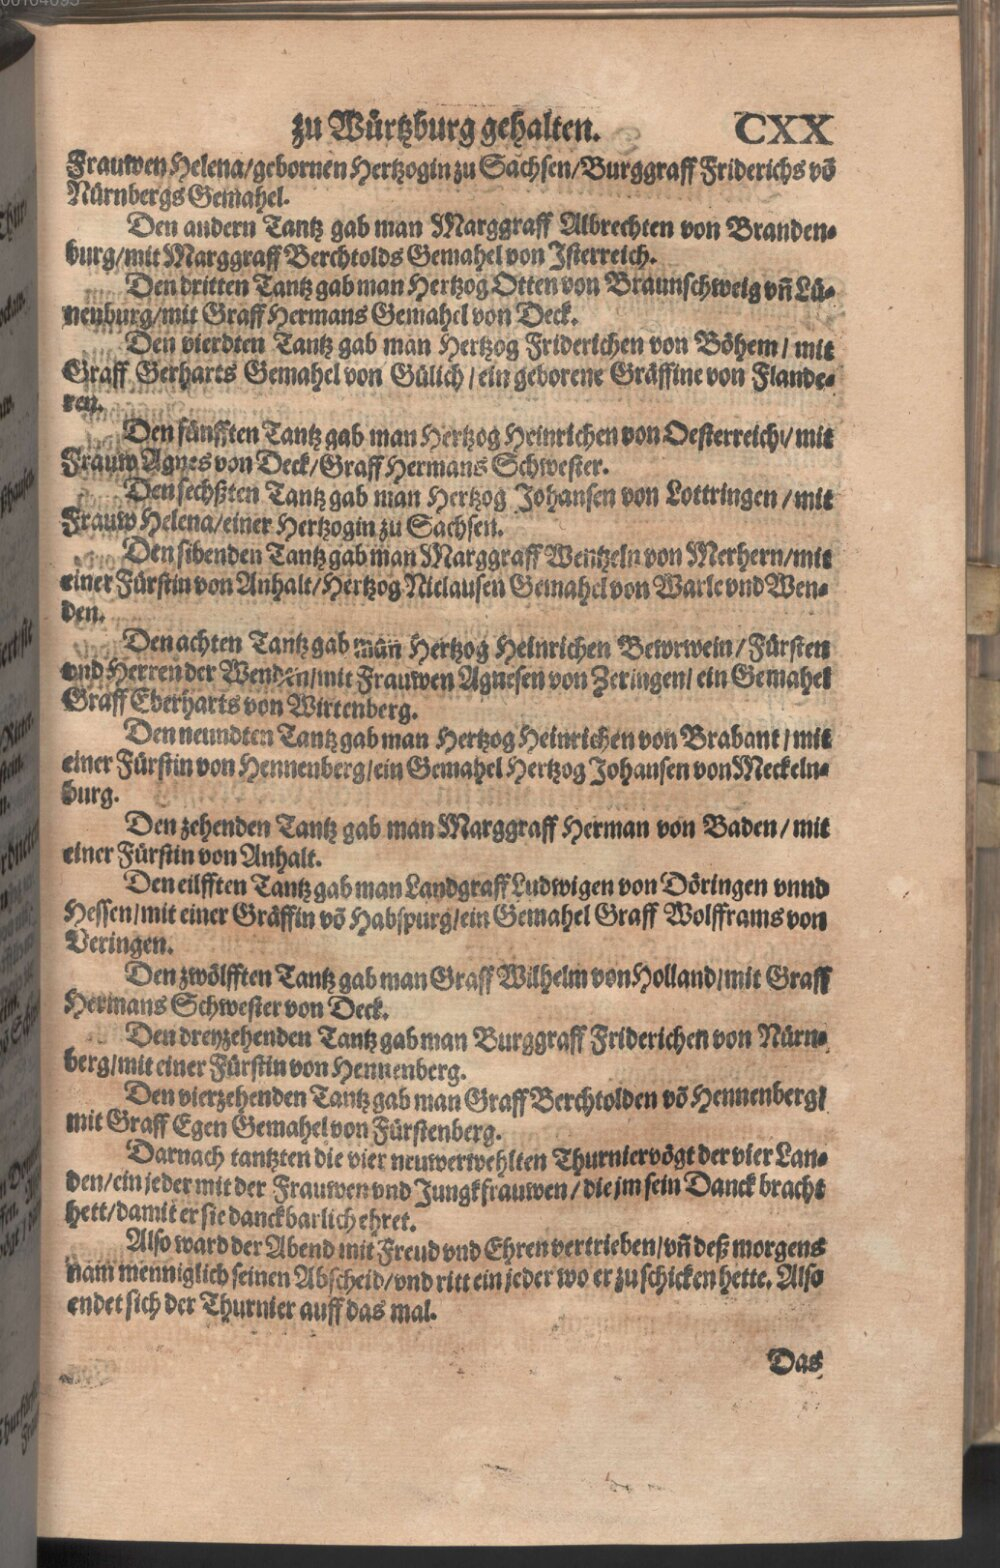 zu Würtzburg gehalten. CXX
Frauwen Helena/gebornen Hertzogin zu Sachsen/Burggraff Friderichs võ
Nürnbergs Gemahel.
Den andern Tantz gab man Marggraff Albrechten von Branden-
burg/mit Marggraff Berchtolds Gemahel von Isterreich.
Den dritten Tantz gab man Hertzog Otten von Braunschweig vñ Lü-
neuburg/mit Graff Hermans Gemahel von Deck.
Den vierdten Tantz gab man Hertzog Friderichen von Böhem/ mit
Graff Gerharts Gemahel von Gülich/ein geborene Gräffine von Flande-
ren.
Den fünfften Tantz gab man Hertzog Heinrichen von Oesterreich/ mit
Frauw Agnes von Deck/Graff Hermans Schwester.
Den sechßten Tantz gab man Hertzog Johansen von Lottringen/mit
Frauw Helena/einer Hertzogin zu Sachsen.
Den sibenden Tantz gab man Marggraff Wentzeln von Merhern/mit
einer Fürstin von Anhalt/Hertzog Niclausen Gemahel von Warle vnd Wen-
den.
Den achten Tantz gab man Hertzog Heinrichen Bewrwein/Fürsten
vnd Herren der Wenden/mit Frauwen Agnesen von Zeringen/ein Gemahel
Graff Eberharts von Wirtenberg.
Den neundten Tantz gab man Hertzog Heinrichen von Brabant/mit
einer Fürstin von Hennenberg/ein Gemahel Hertzog Johansen von Meckeln-
burg.
Den zehenden Tantz gab man Marggraff Herman von Baden/mit
einer Fürstin von Anhalt.
Den eilfften Tantz gab man Landgraff Ludwigen von Döringen vnnd
Hessen/mit einer Gräffin võ Habspurg/ein Gemahel Graff Wolfframs von
Veringen.
Den zwölfften Tantz gab man Graff Wilhelm von Holland/mit Graff
Hermans Schwester von Deck.
Den dreyzehenden Tantz gab man Burggraff Friderichen von Nürn-
berg/mit einer Fürstin von Hennenberg.
Den vierzehenden Tantz gab man Graff Berchtolden võ Hennenberg/
mit Graff Egen Gemahel von Fürstenberg.
Darnach tantzten die vier neuwerwehlten Thurniervögt der vier Lan-
den/ein jeder mit der Frauwen vnd Jungkfrauwen/die jm sein Danck bracht
hett/damit er sie danckbarlich ehret.
Also ward der Abend mit Freud vnd Ehren vertrieben/vñ deß morgens
nam menniglich seinen Abscheid/vnd ritt ein jeder wo er zu schicken hette. Also
endet sich der Thurnier auff das mal.
Das